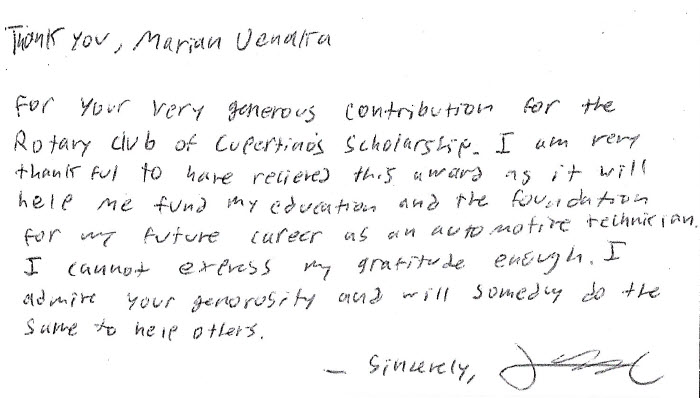 Thank you, Marian Vendlta
For your very generous contribution for the
Rotary club of Cupertino's Scholarship. I am very
thankful to have recieved this award as it will
help me fund my education and the foundation
for my future career as an automotive technician.
I cannot express my gratitude enough. I
admire your generosity and will someday do the
same to help others.
- Sincerely,